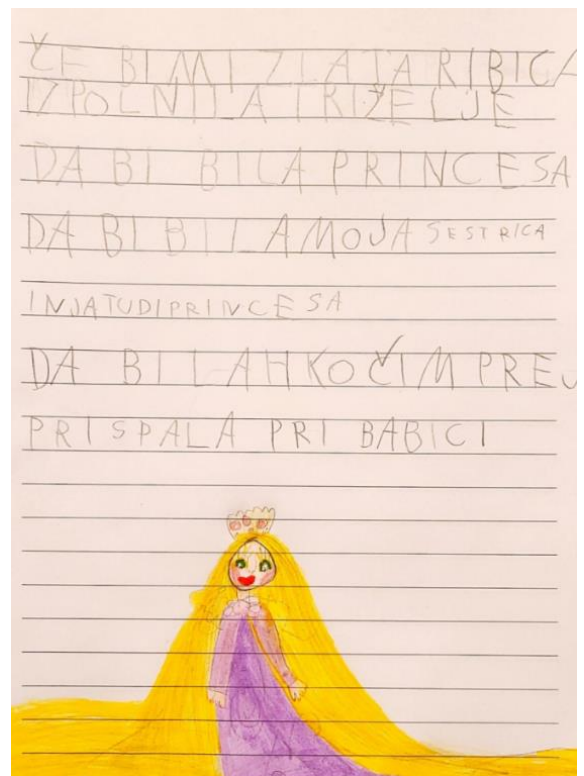 ČE BI MI ZLATA RIBICA
IZPOLNILA TRI ŽELJE
DA BI BILA PRINCESA
DA BI BILA MOJA SESTRICA
INJATUDIPRINCESA
DA BI LAHKO ČIM PREJ
PRI SPALA PRI BABICI